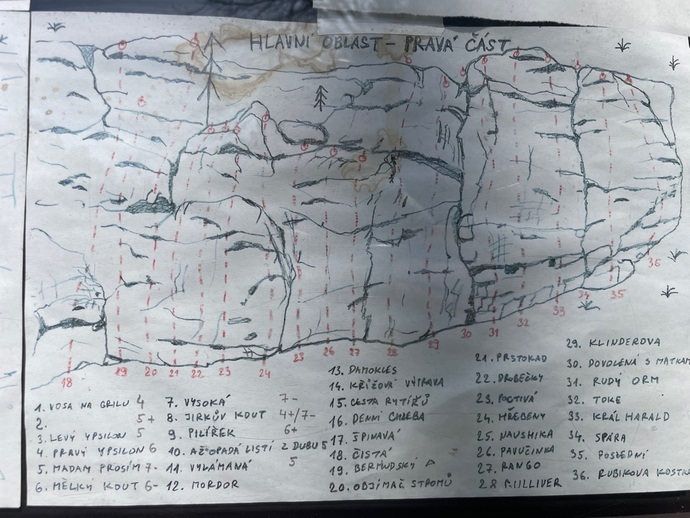 HLAVNÍ OBLAST - PRAVÁ ČÁST
36
18
19
20
21
22
23
24
25
26
27
28
29
30
31
32
33
34
35
1. VOSA NA GRILU 4
2. 5+
3. LEVÝ YPSILON 5
4. PRAVÝ YPSILON 6
5. MADAM PROSÍM 7-
6. MĚLKÝ KOUT 6-
7. VYSOKÁ 7-
8. JIRKŮV KOUT 4+/7-
9. PILÍŘEK 6+
10. AŽ OPADÁ LISTÍ Z DUBU 5
11. VYLÁMANÁ 5
12. MORDOR
13. DAMOKLES
14. KŘÍŽOVÁ VÝPRAVA
15. CESTA RYTÍŘŮ
16. DENNÍ CHLEBA
17. ŠPINAVÁ
18. ČISTÁ
19. BERMUDSKÝ △
20. OBJÍMAČ STROMŮ
21. PRSTOKAD
22. DROBEČKY
23. POCTIVÁ
24. HŘEBENY
25. NAUSHIKA
26. PAVUČINKA
27. RANGO
28. GULLIVER
29. KLINDEROVA
30. DOVOLENÁ S MATKAM
31. RUDY ORM
32. TOKE
33. KRÁL HARALD
34. SPÁRA
35. POSLEDNÍ
36. RUBIKOVA KOSTKA